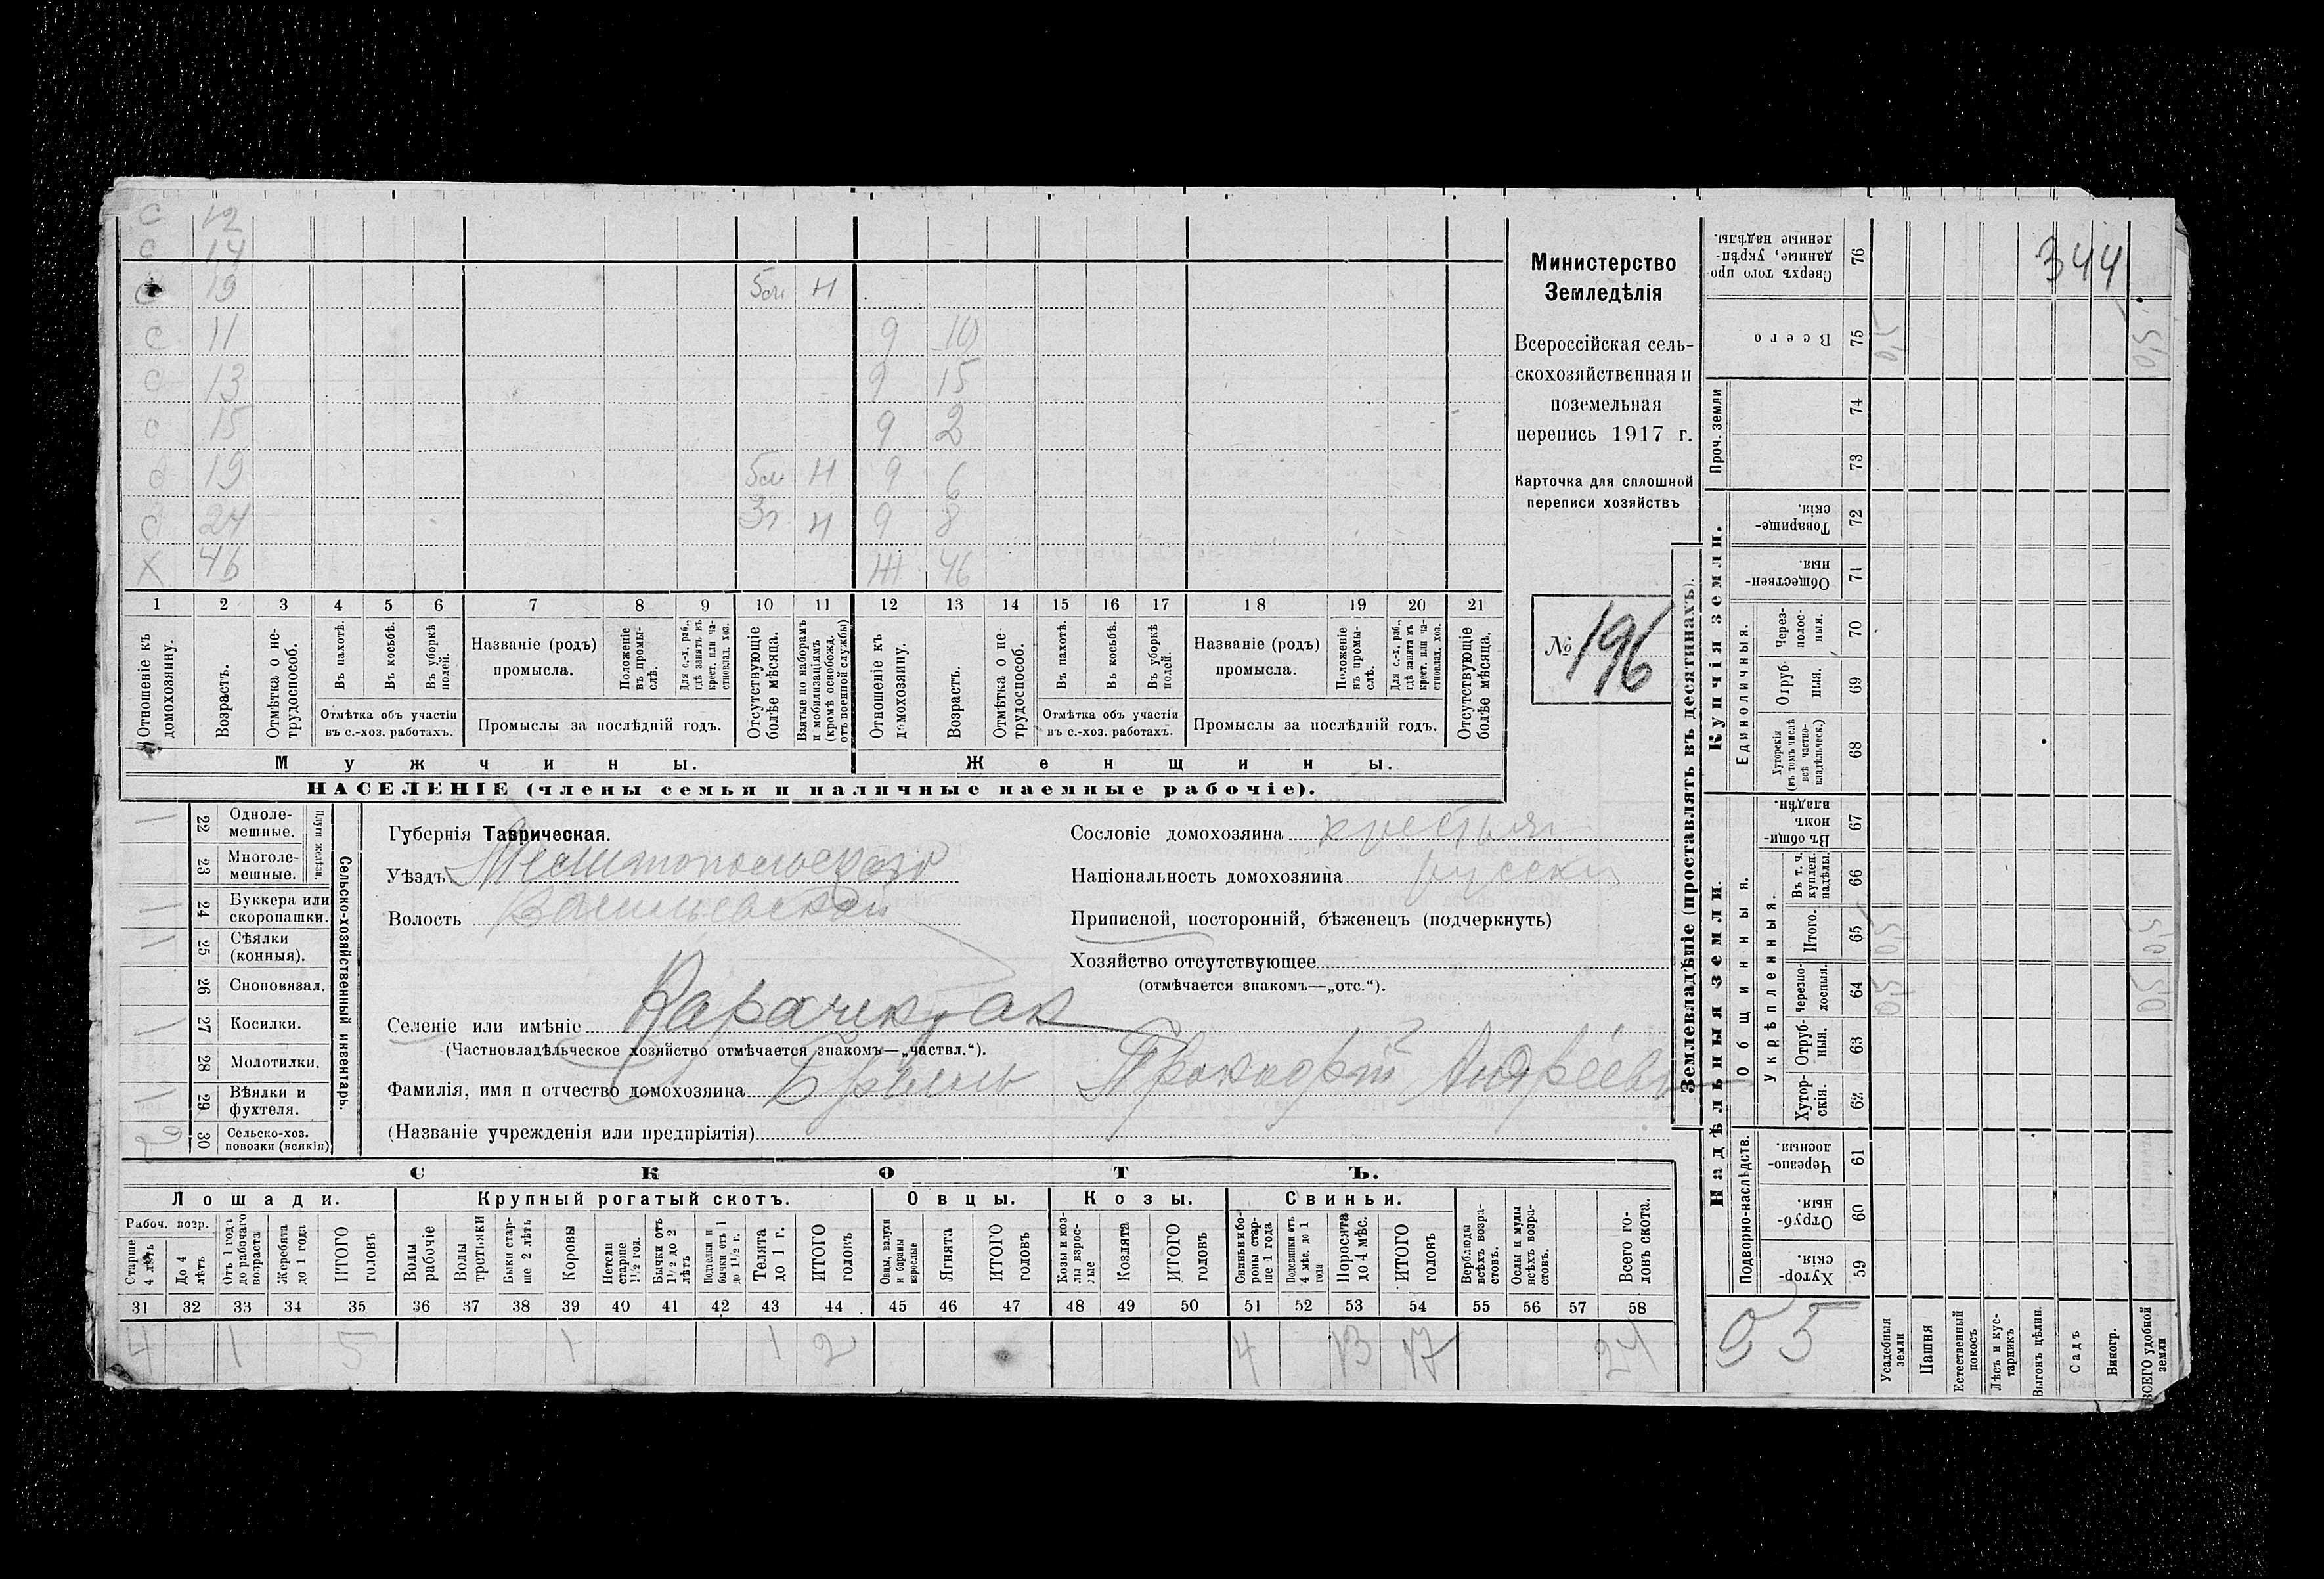 С 12
С 14
С 19 5м Н
С 11 9 10
С 13 9 15
С 15 9 2
С 19 5м Н 9 6
С 24 3г Н 9 8
Х 46 Ж 46
1 2 3 4 5 6 7 8 9 10 11 12 13 14 15 16 17 18 19 20 21
Отношеніе къ домохозяину.
Возрастъ.
Отмѣтка о нетрудоспособ.
Въ пахотѣ.
Въ косьбѣ.
Въ уборкѣ полей.
Отмѣтка объ участіи въ с.-хоз. работахъ.
Названіе (родъ) промысла.
Положеніе въ промыслѣ.
Для с.-х. раб., гдѣ занятъ въ крест. или частновлад. хоз.
Промыслы за послѣдній годъ.
Отсутствующіе болѣе мѣсяца.
Взятые по наборамъ и мобилизаціямъ (кромѣ освобожд. отъ военной службы)
Отношеніе къ домохозяину.
Возрастъ.
Отмѣтка о нетрудоспособ.
Въ пахотѣ.
Въ косьбѣ.
Въ уборкѣ полей.
Отмѣтка объ участіи въ с.-хоз. работахъ.
Названіе (родъ) промысла.
Положеніе въ промыслѣ.
Для с.-х. раб., гдѣ занята въ крест. или частновлад. хоз.
Промыслы за послѣдній годъ.
Отсутствующіе болѣе мѣсяца.
Мужчины. Женщины.
НАСЕЛЕНІЕ (члены семьи и наличные наемные рабочіе).
Министерство
Земледѣлія
Всероссійская сель-
скохозяйственная и
поземельная
перепись 1917 г.
Карточка для сплошной
переписи хозяйствъ
№ 196
Сельско-хозяйственный инвентарь.
Плуги желѣзн.
1 22 Одноле-мешные.
23 Многоле-мешные.
1 24 Буккера или скоропашки.
1 25 Сѣялки (конныя).
26 Сноповязал.
1 27 Косилки.
28 Молотилки.
1 29 Вѣялки и фухтеля.
2 30 Сельско-хоз. повозки (всякія)
Губернія Таврическая.
Уѣздъ Мелитопольскаго
Волость Васильевской
Селеніе или имѣніе Карачекрак
(Частновладѣльческое хозяйство отмѣчается знакомъ—„частвл.“).
Фамилія, имя и отчество домохозяина Прокофій Андреев
(Названіе учрежденія или предпріятія)
Сословіе домохозяина крестьян
Національность домохозяина русски
Приписной, посторонній, бѣженецъ (подчеркнуть)
Хозяйство отсутствующее
(отмѣчается знакомъ—„отс.“).
СКОТЪ.
Лошади. Крупный рогатый скотъ. Овцы. Козы. Свиньи.
Рабоч. возр.
Старше 4 лѣтъ
До 4 лѣтъ
Отъ 1 года до рабочаго возраста
Жеребята до 1 года
ИТОГО головъ
Волы рабочіе
Волы третьяки
Быки старше 2 лѣтъ
Коровы
Нетели старше 1½ год.
Бычки отъ 1½ до 2 лѣтъ
Подтелки и бычки отъ 1 до 1½ г.
Телята до 1 г.
ИТОГО головъ
Овцы, валухи и бараны взрослые
Ягнята
ИТОГО головъ
Козы и козлы взрослые
Козлята
ИТОГО головъ
Свиньи и бороны старше 1 года
Подсвинки отъ 4 мѣс. до 1 года
Поросята до 4 мѣс.
ИТОГО головъ
Верблюды всѣхъ возрастовъ.
Ослы и мулы всѣхъ возрастовъ.
Всего головъ скота.
31 32 33 34 35 36 37 38 39 40 41 42 43 44 45 46 47 48 49 50 51 52 53 54 55 56 57 58
4 1 5 1 1 2 4 13 17 24
Землевладѣніе (проставлять въ десятинахъ).
344
76 Сверхъ того проданные, укрѣпленные надѣлы.
75 Всего 0,5 0,5
Купчія земли.
Проч. земли
74
73
72 Товарищескія.
71 Общественныя.
Единоличныя.
70 Черезполосныя.
69 Отрубныя.
68 Хуторскія (въ томъ числѣ всѣ частновладѣльческ.)
Надѣльныя земли.
Общинныя.
67 Въ общинномъ владѣн.
Укрѣпленныя.
66 Въ т. ч. куплен. надѣлы.
65 Итого. 0,5 0,5
64 Черезполосныя. 0,5 0,5
63 Отрубныя.
62 Хуторскія.
Подворно-наслѣдств.
61 Черезполосныя.
60 Отрубныя.
59 Хуторскія.
Усадебныя земли
Пашня
Естественный покосъ
Лѣсъ и кустарникъ
Выгонъ цѣлин.
Садъ
Виногр.
ВСЕГО удобной земли